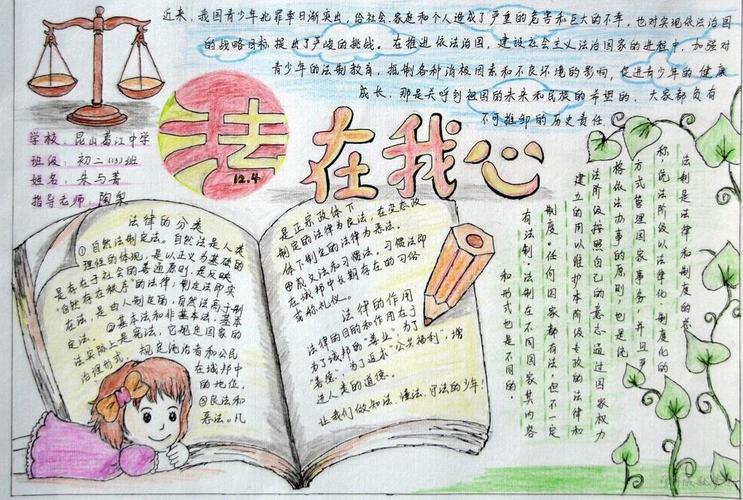 近来，我国青少年犯罪率日渐突出，给社会、家庭和个人造成了严重的危害和巨大的不幸，也对实现依法治国
的战略目标提出了严峻的挑战。在推进依法治国，建设社会主义法治国家的进程中，加强对
青少年的法制教育，抵制各种消极因素和不良环境的影响，促进青少年的健康
成长，那是关呼到祖国的未来和民族的希望的，大家都负有
不可推卸的历史责任
法在我心
12.4
学校：昆山葛江中学
班级：初二(13)班
姓名：朱与菁
指导老师：陶
法律的分类
①自然法制定法。自然法是人类
理性的体现，是以正义为基础的
是存在于社会的普通原则，是反映
“自然存在秩序”的法律；制定法即实
在法，是由人制定的，自然法高于制
定法。②基本法和非基本法，基本
法实际上是宪法，它规定国家的
治理形式，规定统治者和公民
在城邦中
的地位。
③良法和
恶法。凡
是正宗政体下
制定的法律为良法，在变态政
体下制定的法律为恶法。
④成文法和习惯法。习惯法即
在城邦中长期存在的习俗
或称礼仪。
法律的作用
法律的目的和作用在于
为了城邦的“善业”，为了
“善德”，为了追求“公共福利”，增
进人类的道德。
让我们做知法、懂法、守法的少年！
法制是法律和制度的总
称，统治阶级以法律化、制度化的
方式管理国家事务，并且严
格依法办事的原则，也是统
治阶级按照自己的意志通过国家权力
建立的用以维护本阶级专政的法律和
制度。任何国家都有法，但不一定
有法制，法制在不同国家其内容
和形式也是不同的。